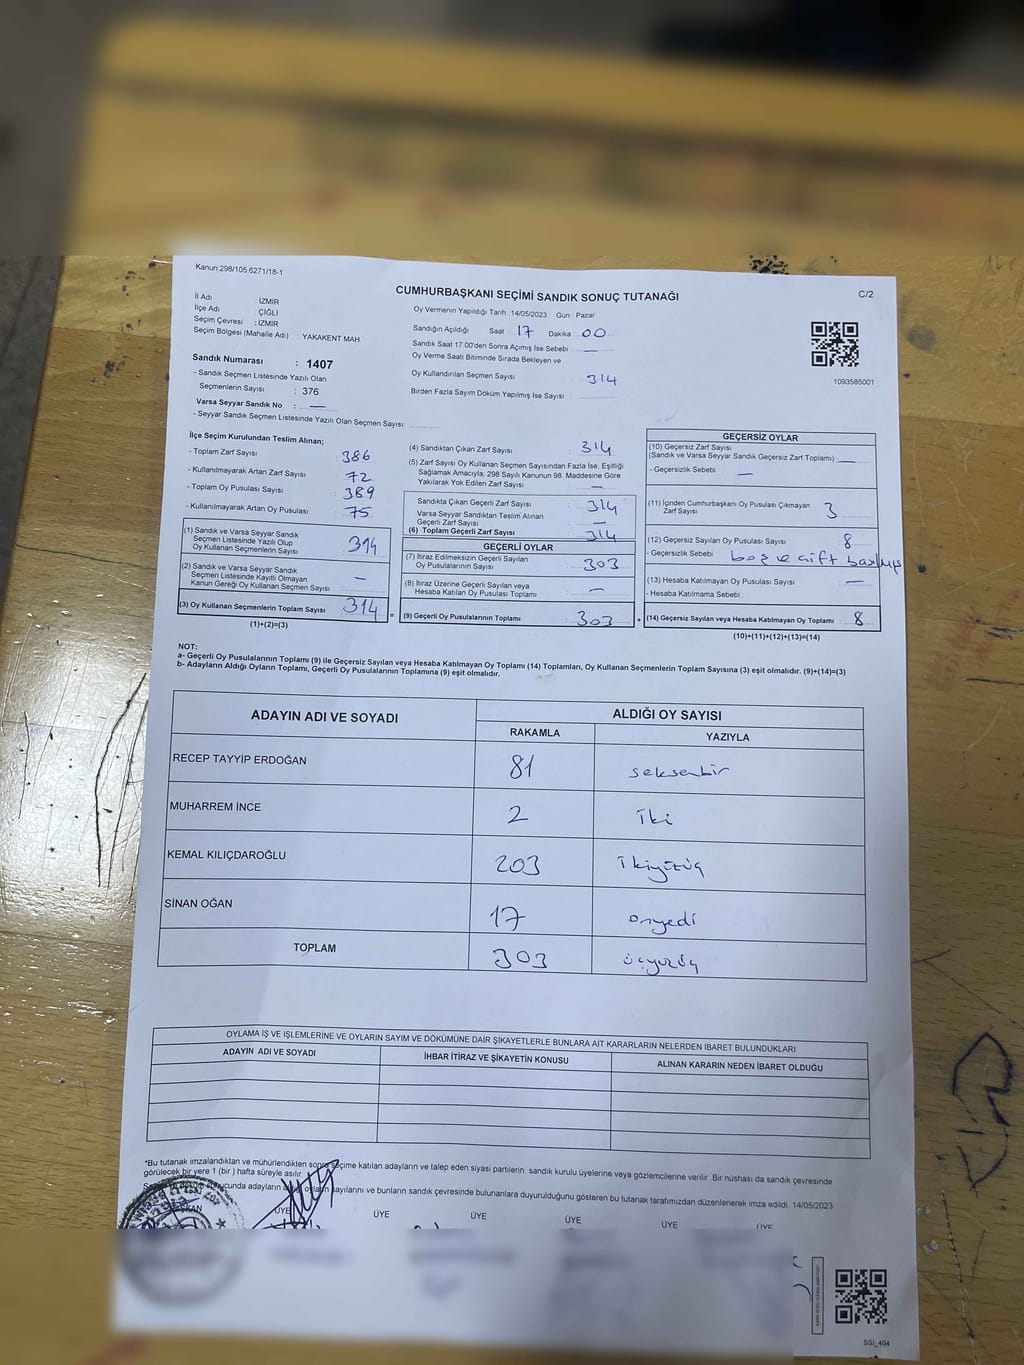 Kanun:298/105,6271/18-1
C/2
CUMHURBAŞKANI SEÇİMİ SANDIK SONUÇ TUTANAĞI
İl Adı : İZMİR
İlçe Adı : ÇİĞLİ
Seçim Çevresi : İZMİR
Seçim Bölgesi (Mahalle Adı) : YAKAKENT MAH
Sandık Numarası : 1407
- Sandık Seçmen Listesinde Yazılı Olan
Seçmenlerin Sayısı : 376
Varsa Seyyar Sandık No : —
- Seyyar Sandık Seçmen Listesinde Yazılı Olan Seçmen Sayısı:
Oy Vermenin Yapıldığı Tarih 14/05/2023 Gün : Pazar
Sandığın Açıldığı Saat 17 Dakika 00
Sandık Saat 17:00'den Sonra Açılmış İse Sebebi : —
Oy Verme Saati Bitiminde Sırada Bekleyen ve
Oy Kullandırılan Seçmen Sayısı : 314
Birden Fazla Sayım Döküm Yapılmış İse Sayısı :
1093585001
İlçe Seçim Kurulundan Teslim Alınan;
- Toplam Zarf Sayısı : 386
- Kullanılmayarak Artan Zarf Sayısı : 72
- Toplam Oy Pusulası Sayısı : 389
- Kullanılmayarak Artan Oy Pusulası : 75
(1) Sandık ve Varsa Seyyar Sandık
Seçmen Listesinde Yazılı Olup
Oy Kullanan Seçmenlerin Sayısı : 314
(2) Sandık ve Varsa Seyyar Sandık
Seçmen Listesinde Kayıtlı Olmayan
Kanun Gereği Oy Kullanan Seçmen Sayısı : —
(3) Oy Kullanan Seçmenlerin Toplam Sayısı : 314
(1)+(2)=(3)
(4) Sandıktan Çıkan Zarf Sayısı : 314
(5) Zarf Sayısı Oy Kullanan Seçmen Sayısından Fazla İse, Eşitliği
Sağlamak Amacıyla, 298 Sayılı Kanunun 98. Maddesine Göre
Yakılarak Yok Edilen Zarf Sayısı : —
Sandıkta Çıkan Geçerli Zarf Sayısı : 314
Varsa Seyyar Sandıktan Teslim Alınan
Geçerli Zarf Sayısı : —
(6) Toplam Geçerli Zarf Sayısı : 314
GEÇERLİ OYLAR
(7) İtiraz Edilmeksizin Geçerli Sayılan
Oy Pusulalarının Sayısı : 303
(8) İtiraz Üzerine Geçerli Sayılan veya
Hesaba Katılan Oy Pusulası Toplamı : —
(9) Geçerli Oy Pusulalarının Toplamı : 303
GEÇERSİZ OYLAR
(10) Geçersiz Zarf Sayısı
(Sandık ve Varsa Seyyar Sandık Geçersiz Zarf Toplamı) : —
- Geçersizlik Sebebi : —
(11) İçinden Cumhurbaşkanı Oy Pusulası Çıkmayan
Zarf Sayısı : 3
(12) Geçersiz Sayılan Oy Pusulası Sayısı : 8
- Geçersizlik Sebebi : boş ve çift basılmış
(13) Hesaba Katılmayan Oy Pusulası Sayısı : —
- Hesaba Katılmama Sebebi :
(14) Geçersiz Sayılan veya Hesaba Katılmayan Oy Toplamı : 8
(10)+(11)+(12)+(13)=(14)
NOT:
a- Geçerli Oy Pusulalarının Toplamı (9) ile Geçersiz Sayılan veya Hesaba Katılmayan Oy Toplamı (14) Toplamları, Oy Kullanan Seçmenlerin Toplam Sayısına (3) eşit olmalıdır. (9)+(14)=(3)
b- Adayların Aldığı Oyların Toplamı, Geçerli Oy Pusulalarının Toplamına (9) eşit olmalıdır.
ADAYIN ADI VE SOYADI ALDIĞI OY SAYISI
RAKAMLA YAZIYLA
RECEP TAYYİP ERDOĞAN 81 seksenbir
MUHARREM İNCE 2 iki
KEMAL KILIÇDAROĞLU 203 ikiyüzüç
SİNAN OĞAN 17 onyedi
TOPLAM 303 üçyüzüç
OYLAMA İŞ VE İŞLEMLERİNE VE OYLARIN SAYIM VE DÖKÜMÜNE DAİR ŞİKAYETLERLE BUNLARA AİT KARARLARIN NELERDEN İBARET BULUNDUKLARI
ADAYIN ADI VE SOYADI İHBAR İTİRAZ VE ŞİKAYETİN KONUSU ALINAN KARARIN NEDEN İBARET OLDUĞU
*Bu tutanak imzalandıktan ve mühürlendikten sonra seçime katılan adayların ve talep eden siyasi partilerin sandık kurulu üyelerine veya gözlemcilerine verilir. Bir nüshası da sandık çevresinde
görülecek bir yere 1 (bir ) hafta süreyle asılır.
adayların oyların sayılarını ve bunların sandık çevresinde bulunanlara duyurulduğunu gösteren bu tutanak tarafımızdan düzenlenerek imza edildi. 14/05/2023
BAŞKAN ÜYE ÜYE ÜYE ÜYE ÜYE ÜYE
SSİ_404